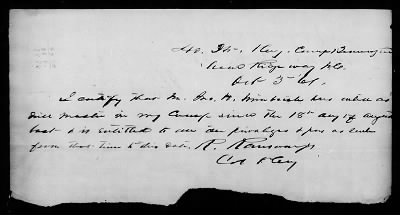 Hd. Qrs. Cavy. Camp
Near Ridgeway N.C.
Oct 3d 61.
I certify that Mr. Jno. H. has acted as
drill master in my Camp since the 18th day of August
last & is entitled to all the privileges & pay as such
from that time to this date. R. Ransom Jr
Col Cavy